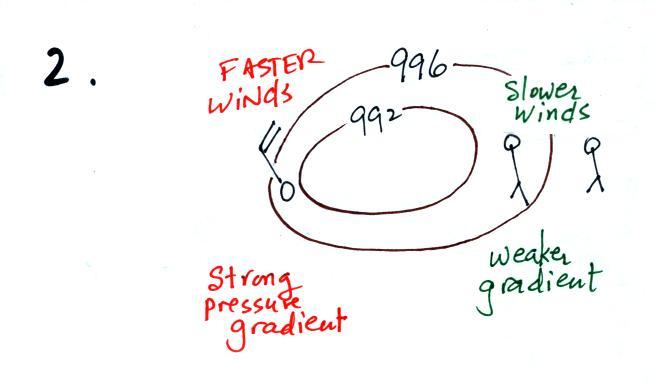 2.
FASTER
WINDS
996
992
Slower
winds
Strong
pressure
gradient
weaker
gradient